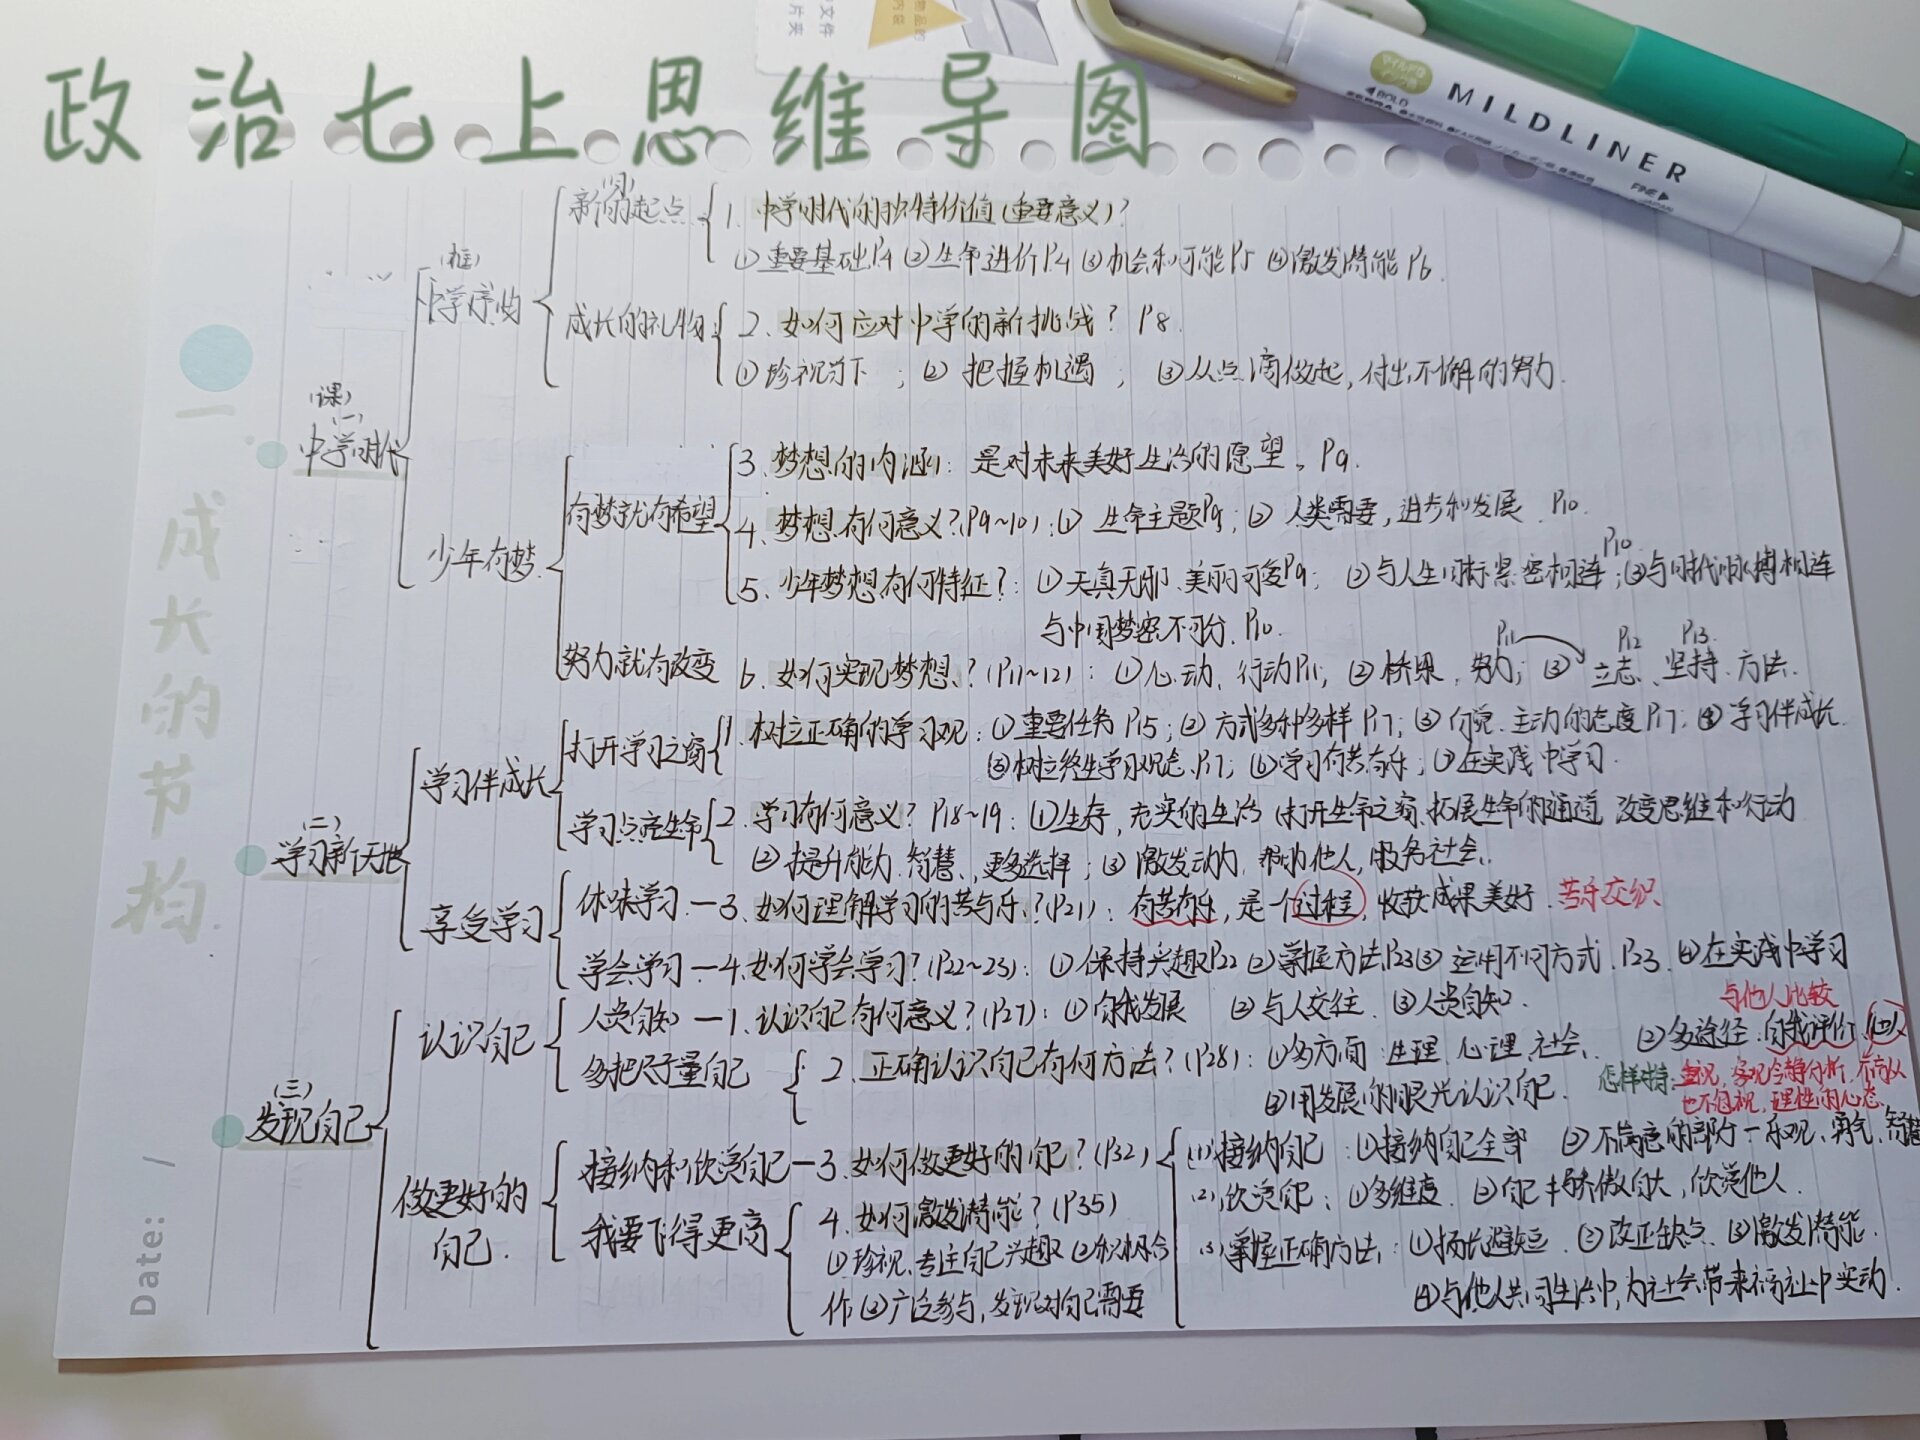 政治七上思维导图
MILDLINER
BOLD
FINE
JAPAN
文件
片夹
一 成长的节拍
Date: /
(课)
(一)
中学时代
(框)
中学序曲
(目)
新的起点
1. 中学时代的独特价值(重要意义)?
①重要基础P4 ②生命进价P4 ③机会和可能P5 ④激发潜能P6.
成长的礼物
2. 如何应对中学的新挑战? P8.
①珍视当下 ; ② 把握机遇 ; ③从点滴做起,付出不懈的努力.
少年有梦.
有梦就有希望
3. 梦想的内涵: 是对未来美好生活的愿望。P9.
4. 梦想有何意义?(P9~10):① 生命主题P9; ② 人类需要,进步和发展. P10.
5. 少年梦想有何特征?: ①天真无邪、美丽可爱P9; ②与人生目标紧密相连P10;③与时代脉搏相连
与中国梦密不可分. P10.
努力就有改变
6. 如何实现梦想?(P11~12): ①心动、行动P11, ②桥梁,努力;P11 ③ 立志P12、坚持P13、方法.
(二)
学习新天地
学习伴成长
打开学习之窗
1. 树立正确的学习观: ①重要任务P15; ② 方式多种多样P17; ③自觉、主动的态度P17; ④学习伴成长.
⑤树立终生学习观念.P17; ⑥学习有苦有乐; ⑦在实践中学习.
学习点亮生命
2. 学习有何意义? P18~19: ①生存,充实的生活(打开生命之窗、拓展生命的通道,改变思维和行动
②提升能力、智慧、更多选择; ③激发动力,帮助他人,服务社会.
享受学习
体味学习—3. 如何理解学习的苦与乐?(P21): 有苦有乐,是一个过程,收获成果美好. 苦乐交织
学会学习—4. 如何学会学习?(P22~23): ①保持兴趣P22 ②掌握方法P23③运用不同方式.P23. ④在实践中学习
(三)
发现自己
认识自己
人贵自知—1. 认识自己有何意义?(P27): ①自我发展 ②与人交往. ③人贵自知.
多把尺子量自己
2. 正确认识自己有何方法?(P28): ①多方面:生理、心理、社会. ②多途径:自我评价、他人
与他人比较
③用发展的眼光认识自己.
怎样对待: 重视,客观冷静分析,不盲从
也不忽视,理性的心态.
做更好的
自己.
接纳和欣赏自己—3. 如何做更好的自己?(P32)
(1)接纳自己: ①接纳自己全部 ②不满意的部分—乐观、勇气、智慧
(2)欣赏自己: ①多维度. ②自己不骄傲自大,欣赏他人.
(3)掌握正确方法: ①扬长避短 ②改正缺点. ③激发潜能.
④与他人共同生活中,为社会带来福祉中实动.
我要飞得更高
4. 如何激发潜能?(P35)
①珍视、专注自己兴趣 ②积极合
作 ③广泛参与,发现对自己需要